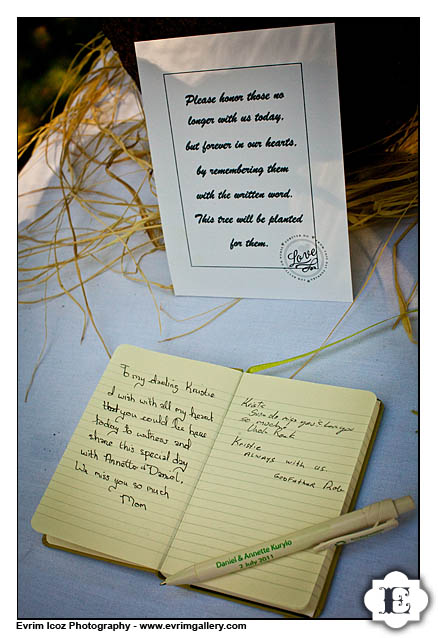 Please honor those no
longer with us today,
but forever in our hearts,
by remembering them
with the written word.
This tree will be planted
for them.
Love
To my darling Kristie
I wish with all my heart
that you could be here
today to witness and
share this special day
with Annette & Daniel.
We miss you so much
Mom
Kristie
so much!
Kristie
Always with us.
Godfather
Daniel & Annette Kurylo
2 July 2011
E
Evrim Icoz Photography - www.evrimgallery.com